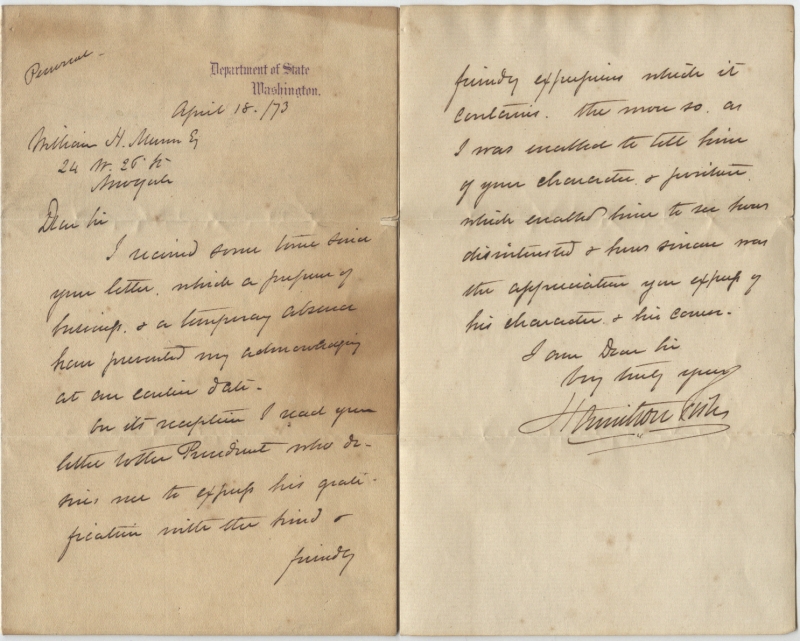 Personal
Department of State
Washington.
April 18. /73
William H. Munn Esq
24 W. 26 St
New York
Dear Sir
I received some time since
your letter, which a pressure of
business, & a temporary absence
have prevented my acknowledging
at an earlier date.
On its reception I read your
letter to the President who de-
sires me to express his grati-
fication with the kind &
friendly
friendly expressions which it
contains. the more so, as
I was enabled to tell him
of your character, & position,
which enabled him to see how
disinterested & how sincere was
the appreciation you express of
his character, & his career.
I am Dear Sir
Very truly yours
Hamilton Fish